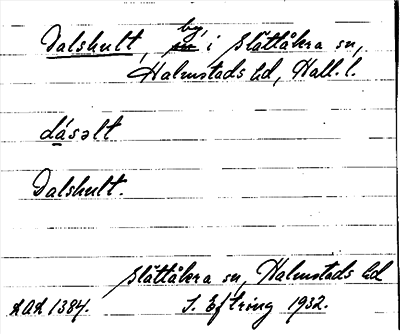 Dalshult, by, i Slättåkra sn,
Halmstads hd, Hall. l.
dásəlt
Dalshult.
Slättåkra sn, Halmstads hd
AOA 1384. S. Eftring 1932.